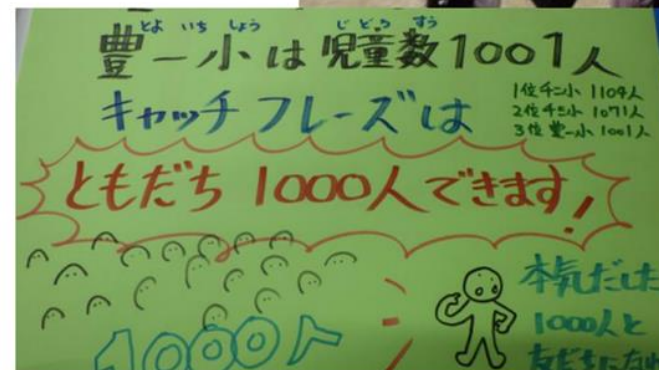 とよいちしょう じどうすう
豊一小は児童数1001人
キャッチフレーズは
1位千二小 1104人
2位千三小 1071人
3位豊一小 1001人
ともだち1000人できます!
1000人
本気だした
1000人と
友だちになれ